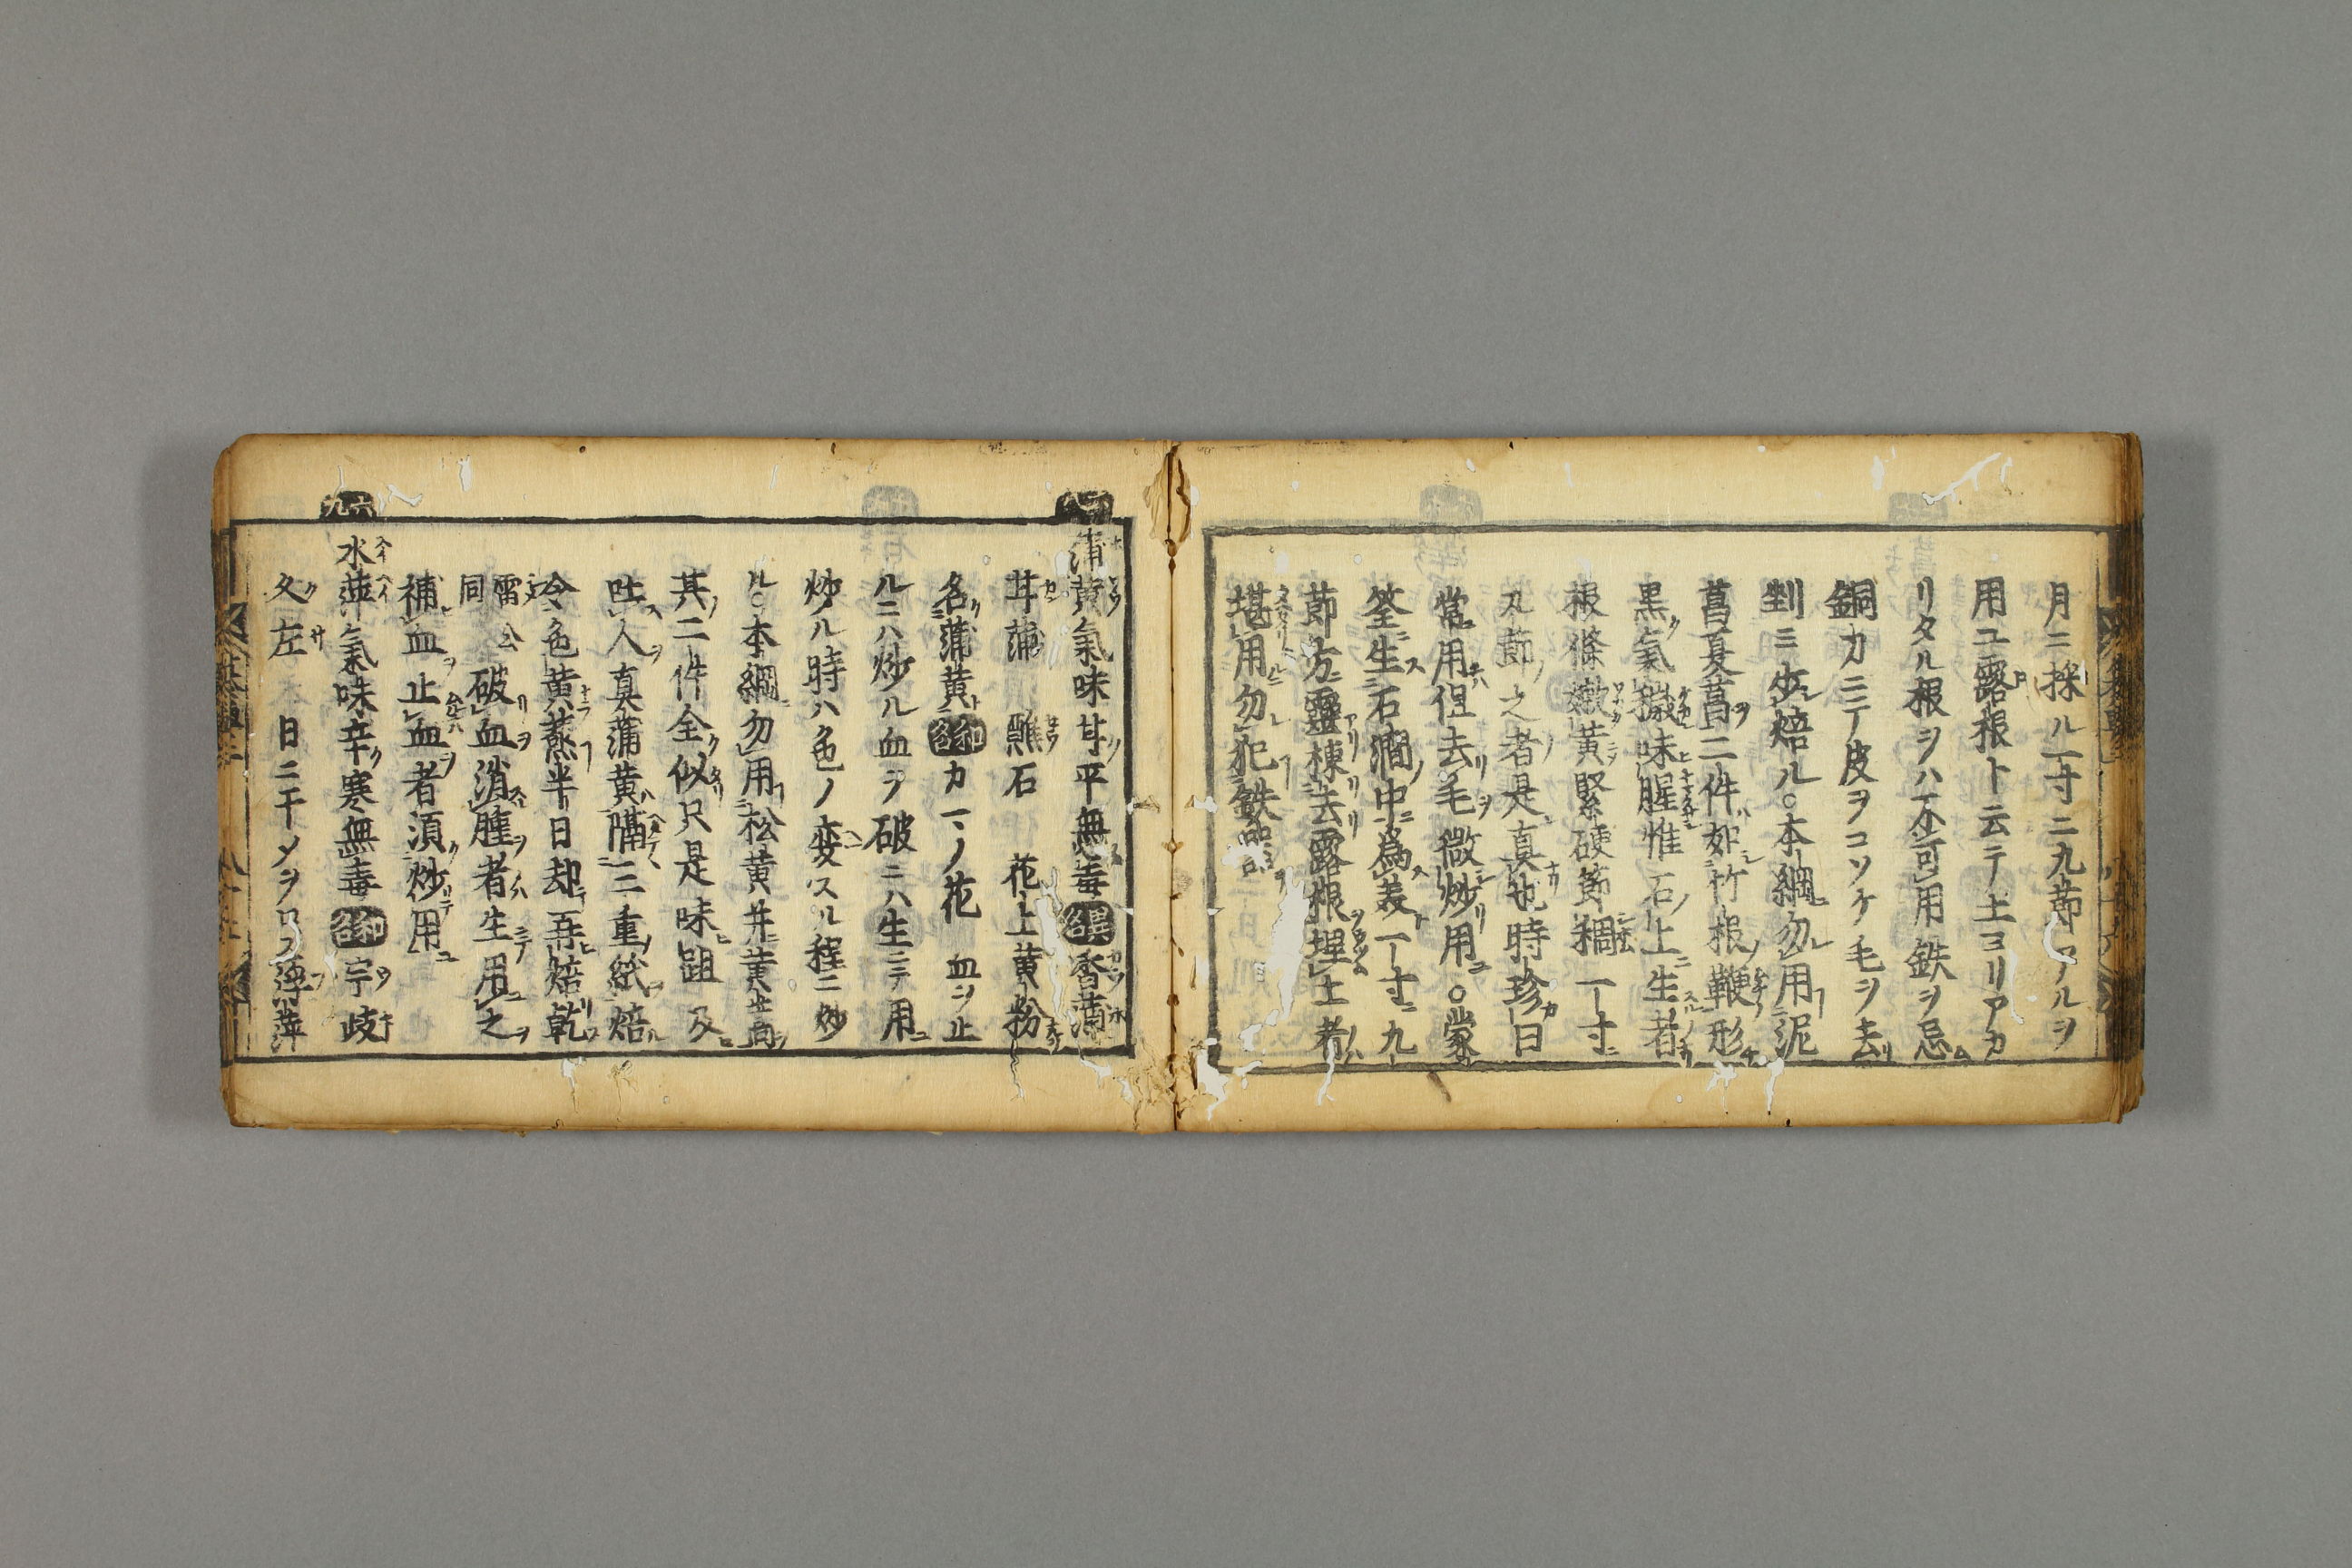 月ニ採ル一寸ニ九節アルヲ
用ユ露根ト云テ土ヨリアカ
リタル根ヲハ不可用鉄ヲ忌
銅カニテ皮ヲコソケ毛ヲ去
剉ミ少焙ル○本綱勿用泥
菖夏菖二件如竹根鞭形
黒氣穢味腥惟石上生者
根條嫩黄緊硬節稠一寸
九節之者是真也時珍曰
常用但去毛微炒用○蒙
筌生石澗中為美一寸九
節方靈棟去露根埋土者
堪用勿犯鉄器
蒲黄氣味甘平無毒異名香蒲
甘蒲 醮石 花上黄粉
名蒲黄和名カマノ花 血ヲ止
ルニハ炒ル血ヲ破ニハ生ニテ用
炒ル時ハ色ノ変スル程ニ炒
ル○本綱勿用松黄并黄蒿
其二件全似只是味跙及
吐人真蒲黄隔三重紙焙
令色黄蒸半日却再焙乾
雷公同 破血消腫者生用之
補血止血者須炒用
六九
水萍氣味辛寒無毒和名宇岐
久左 日ニ干メヲロス薸萍